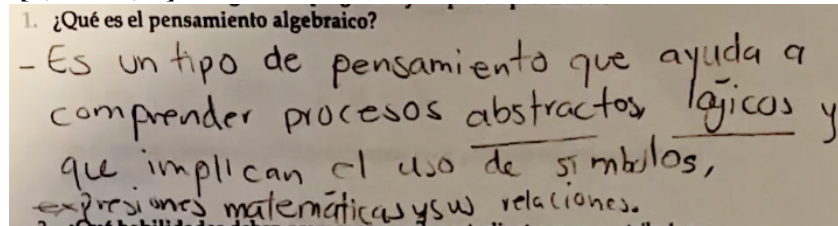 1. ¿Qué es el pensamiento algebraico?
- Es un tipo de pensamiento que ayuda a
comprender procesos abstractos, lógicos y
que implican el uso de símbolos,
expresiones matemáticas y sus relaciones.